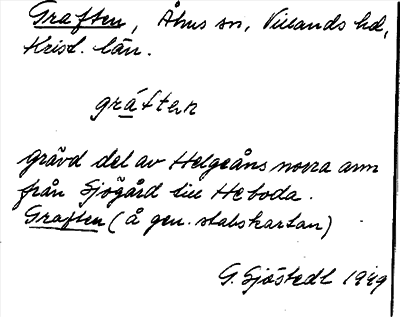 Graften, Åhus sn, Villands hd,
Krist. län.
gráften
grävd del av Helgeåns norra arm
från Sjögård till Heboda.
Graften (å gen. stabskartan)
G. Sjöstedt 1949